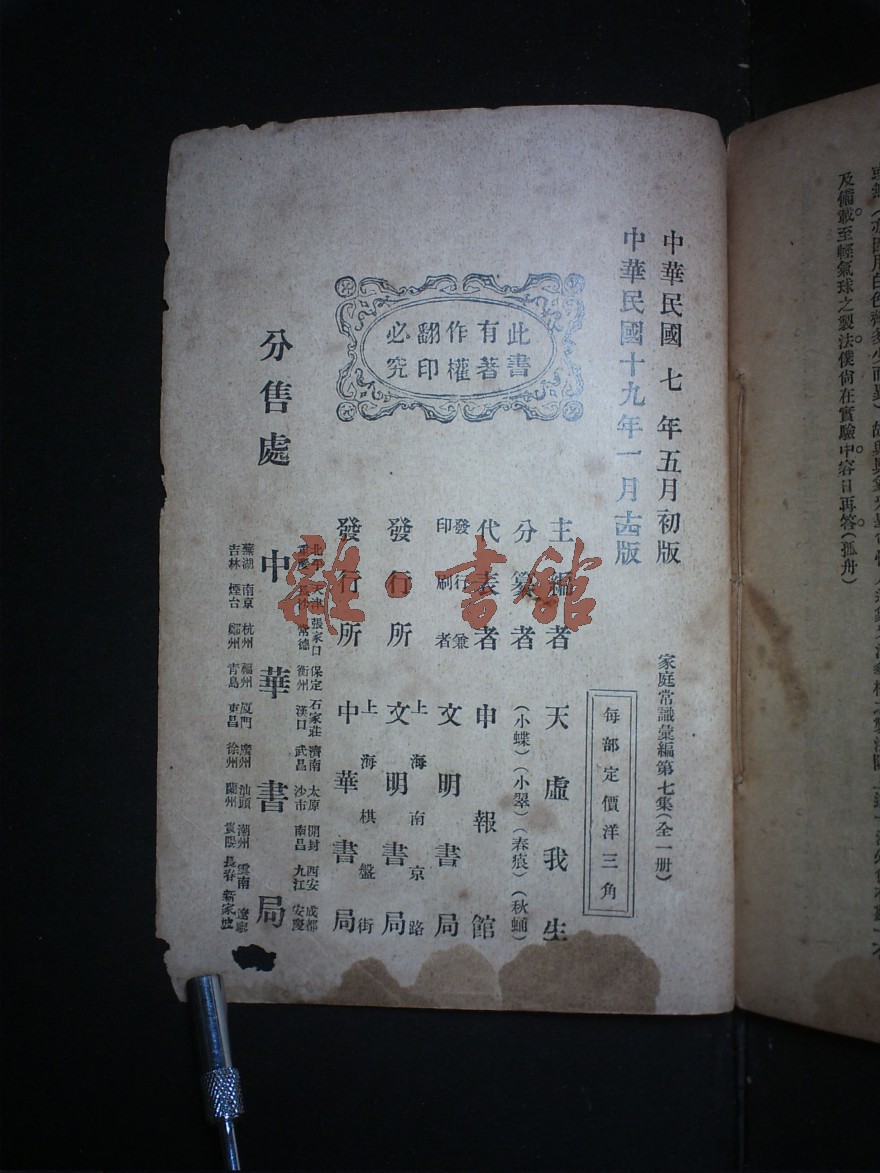 及備載至輕氣球之製法。僕尙在實驗中。容日再答（孤舟）
中華民國七年五月初版
中華民國十九年一月十四版
家庭常識彙編第七集（全一册）
每部定價洋三角
此書
有著
作權
翻印
必究
主編者 天虛我生
分纂者 （小蝶）（小翠）（春痕）（秋蛹）
代表者 申報館
發行兼
印刷者 文明書局
上海南京路
發行所 文明書局
上海棋盤街
發行所 中華書局
分售處 中華書局
北平 天津 張家口 保定 石家莊 濟南 太原 開封 西安 成都
常德 衡州 漢口 武昌 沙市 南昌 九江 安慶
蕪湖 南京 杭州 福州 廈門 廣州 汕頭 潮州 雲南 遼寧
吉林 煙台 鄭州 青島 東昌 徐州 蘭州 貴陽 長春 新家坡
雜·書館